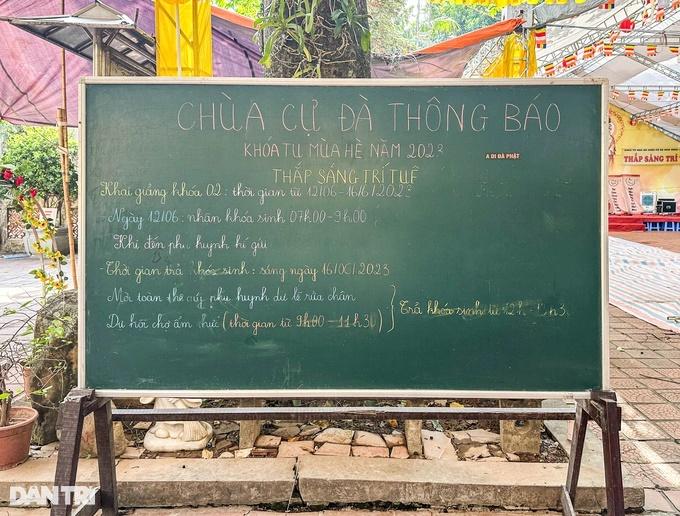 CHÙA CỰ ĐÀ THÔNG BÁO
KHÓA TU MÙA HÈ NĂM 2023
A DI ĐÀ PHẬT
THẮP SÁNG TRÍ TUỆ
Khai giảng khóa 02: thời gian từ 12/06-16/6/2023
- Ngày 12/06: nhân khóa sinh 07h00-9h00
Khi đến phụ huynh kí gửi
- Thời gian trả khóa sinh: sáng ngày 16/06/2023
Mời toàn thể phụ huynh dự lễ rửa chân
Dự hội chợ ẩm thực (thời gian từ 9h00-11h30)
Trả khóa sinh từ
THẮP SÁNG TRÍ
DÂN TRÍ